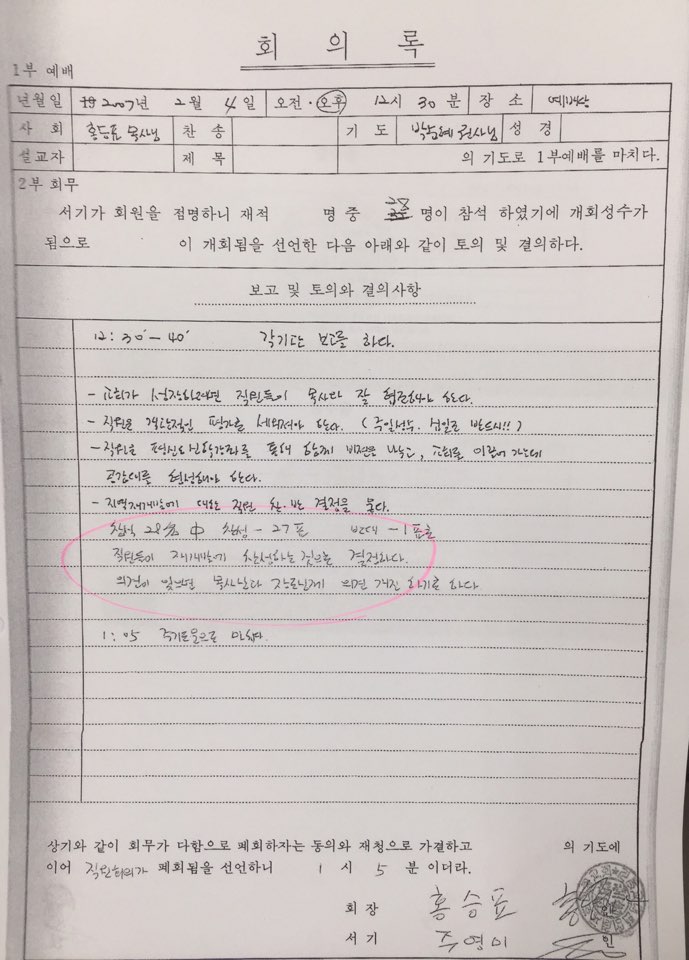 회 의 록
1부 예배
년월일 19 2007년 2월 4일 오전·오후 12시 30분 장 소 예배당
사 회 홍승표 목사님 찬 송 기 도 권사님 성 경
설교자 제 목 의 기도로 1부예배를 마치다.
2부 회무
28
서기가 회원을 점명하니 재적 명 중 명이 참석 하였기에 개회성수가
됨으로 이 개회됨을 선언한 다음 아래와 같이 토의 및 결의하다.
보고 및 토의와 결의사항
12:30´-40´ 각기관 보고를 하다.
- 교회가 성장하려면 직원들이 목사와 잘 협력해야 한다.
- 직원은 개관적인 평가를 세워져야 한다. (주일성수. 십일조 반드시!!)
- 직원은 평신도신학강좌를 통해 함께 비젼을 나누고, 교회를 이끌어 가는데
공감대를 형성해야 한다.
- 지역재개발에 대한 직원 찬·반 결정을 묻다.
참석 28名 中 찬성 - 27표 반대 - 1표로
직원들이 재개발에 찬성하는 것으로 결정하다.
의견이 있으면 목사님과 장로님께 의견 개진 하기로 하다
1:05 주기도문으로 마치다.
상기와 같이 회무가 다함으로 폐회하자는 동의와 재청으로 가결하고 의 기도에
이어 직원회의가 폐회됨을 선언하니 1 시 5 분 이더라.
회 장 홍 승 표
서 기 주 영 미 인